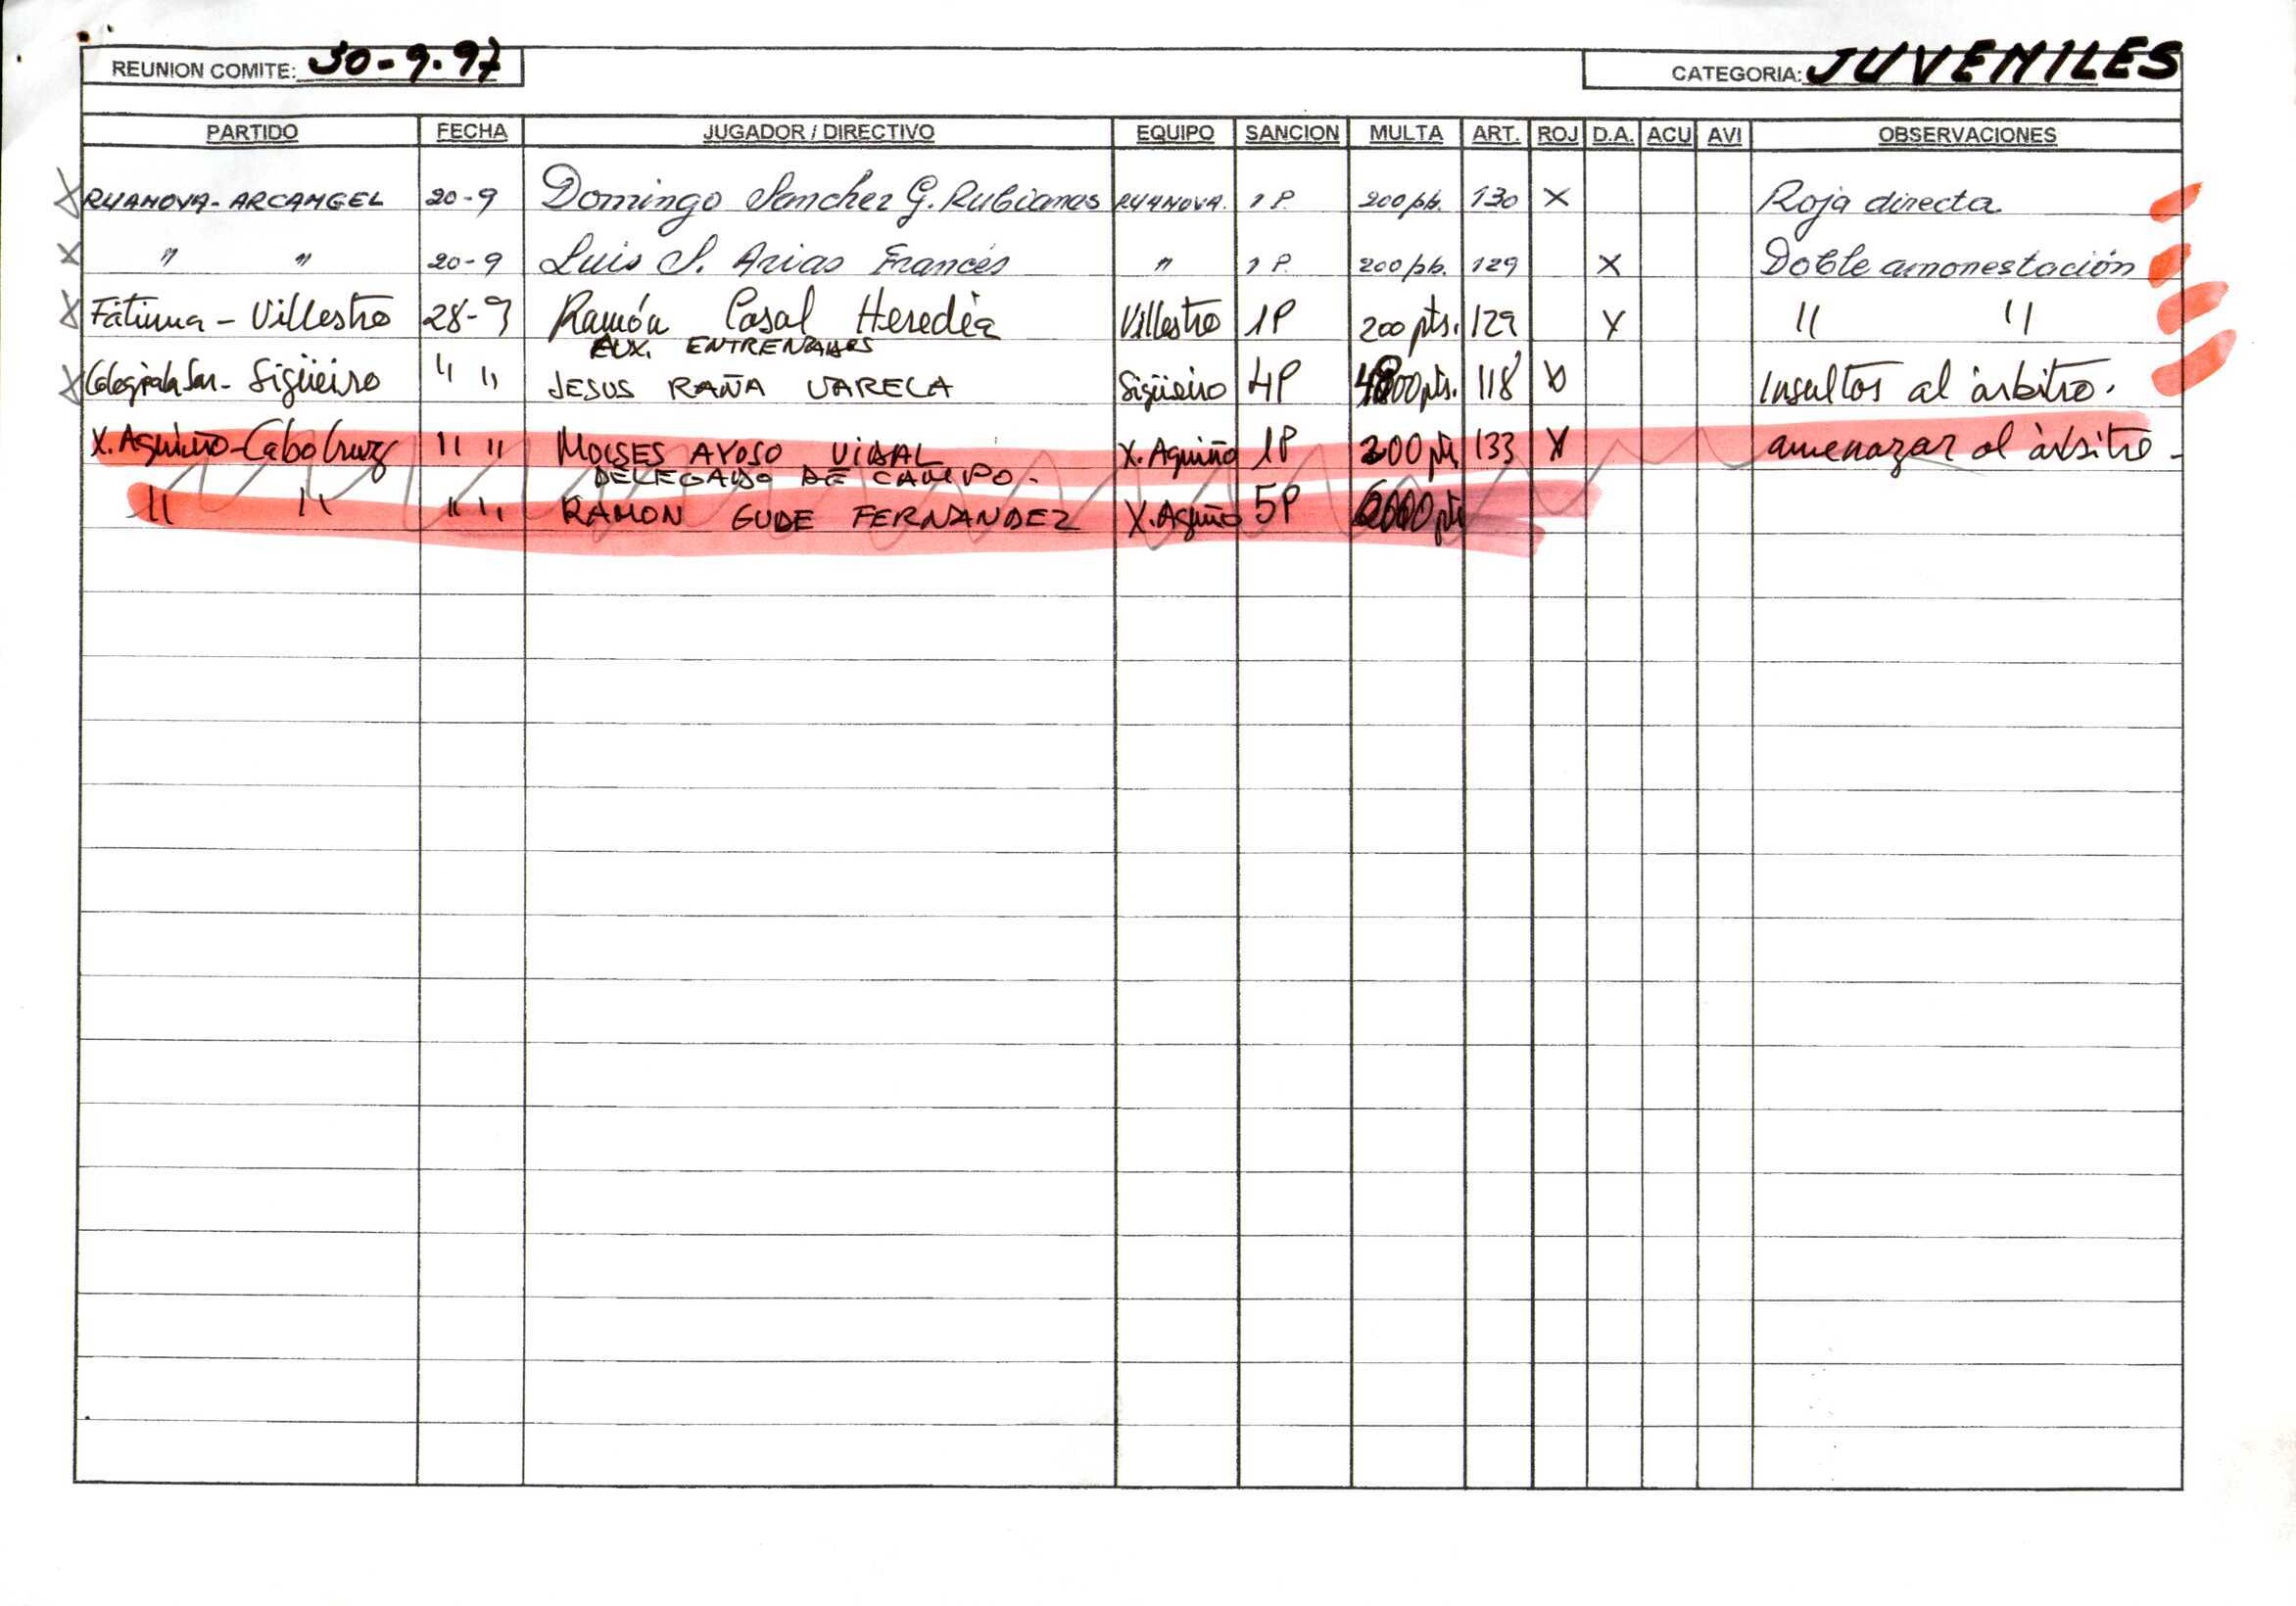 REUNION COMITE: 30-9-97 CATEGORIA: JUVENILES
PARTIDO FECHA JUGADOR / DIRECTIVO EQUIPO SANCION MULTA ART. ROJ D.A. ACU AVI OBSERVACIONES
X RUANOVA- ARCANGEL 20-9 Domingo Sanchez G. Rubianes RUANOVA. 1 P. 200 pts. 130 X Roja directa
X " " 20-9 Luis S. Arias Francés " 1 P. 200 pts. 129 X Doble amonestación
X Fátima - Villestro 28-9 Ramón Casal Heredia Villestro 1P 200 pts. 129 X " "
AUX. ENTRENADORES
X Sar- Sigüeiro " " JESUS RAÑA VARELA Sigüeiro 4P pts. 118 X Insultos al árbitro.
X. Aguiño-Cabo Cruz " " MOISES AYOSO VIDAL X. Aguiño 1P 200 pts 133 X amenazar al árbitro -
DELEGADO DE CAMPO.
" " " " RAMON GUDE FERNANDEZ X. Aguiño 5P pts